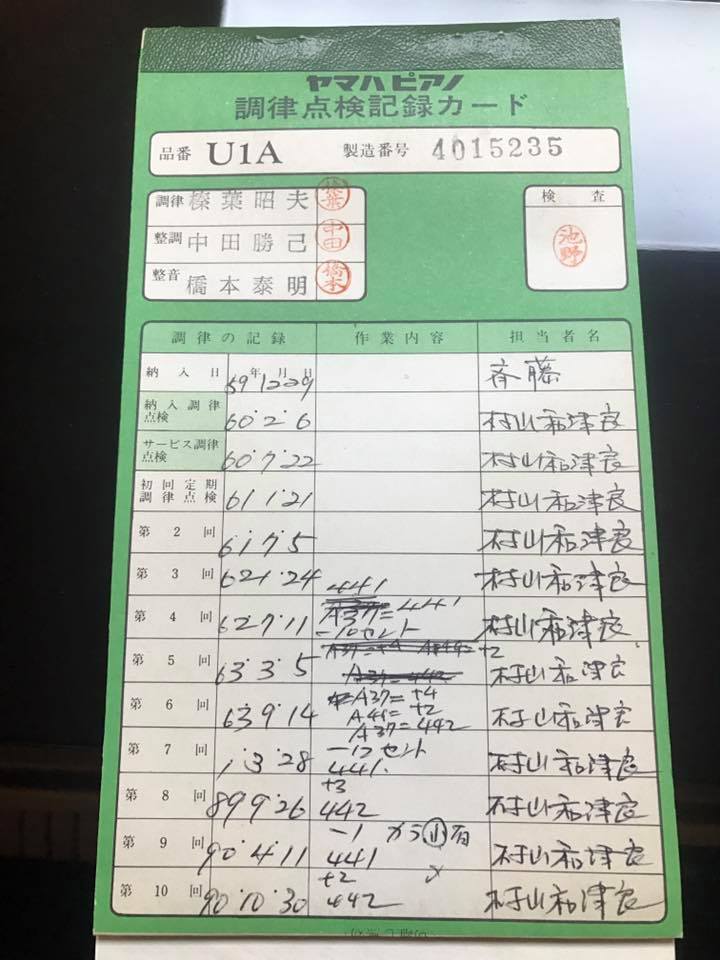 ヤマハピアノ
調律点検記録カード
品番 U1A 製造番号 4015235
調律 榛葉昭夫 榛葉
整調 中田勝己 中田
整音 橋本泰明 橋本
検査
池野
調律の記録 作業内容 担当者名
納入日 59年12月29日 斉藤
納入調律点検 60・2・6 村山和津良
サービス調律点検 60・7・22 村山和津良
初回定期調律点検 61 1・21 村山和津良
第2回 61・7・5 村山和津良
第3回 62 1・24 441 村山和津良
第4回 62 7・11 A37=441 -10セント 村山和津良
第5回 63・3・5 +2 村山和津良
第6回 63・9・14 A37=+4 A41=+2 A37=442 村山和津良
第7回 1・3・28 441 村山和津良
第8回 89 9・26 +3 442 村山和津良
第9回 90・4・11 -1 441 村山和津良
第10回 90・10・30 +2 442 村山和津良